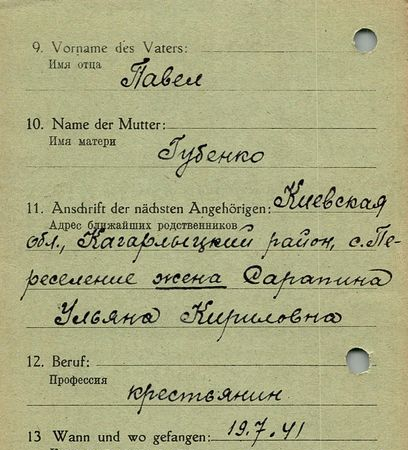 9. Vorname des Vaters:
Имя отца
Павел
10. Name der Mutter:
Имя матери
Губенко
11. Anschrift der nächsten Angehörigen: Киевская
Адрес ближайших родственников
обл., Кагарлыцкий район, с. Пе-
реселение жена Сарапина
Ульяна Кириловна
12. Beruf:
Профессия
крестьянин
13 Wann und wo gefangen: 19.7.41